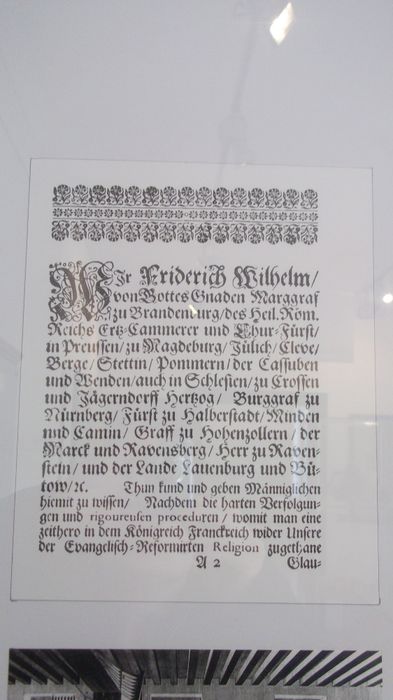 WIr Friderich Wilhelm/
von Gottes Gnaden Marggraf
zu Brandenburg/des Heil. Röm.
Reichs Ertz-Cammerer und Chur-Fürst/
in Preussen/zu Magdeburg/Jülich/Cleve/
Berge/Stettin/Pommern/der Cassuben
und Wenden/auch in Schlesien/zu Crossen
und Jägerndorff Hertzog/ Burggraf zu
Nürnberg/Fürst zu Halberstadt/Minden
und Camin/ Graff zu Hohenzollern/der
Marck und Ravensberg/Herr zu Raven-
stein/und der Lande Lauenburg und Bü-
tow/ꝛc. Thun kund und geben Männiglichen
hiemit zu wissen/ Nachdem die harten Verfolgun-
gen und rigoureusen proceduren/womit man eine
zeithero in dem Königreich Franckreich wider Unsere
der Evangelisch-Reformirten Religion zugethane
A 2 Glau-